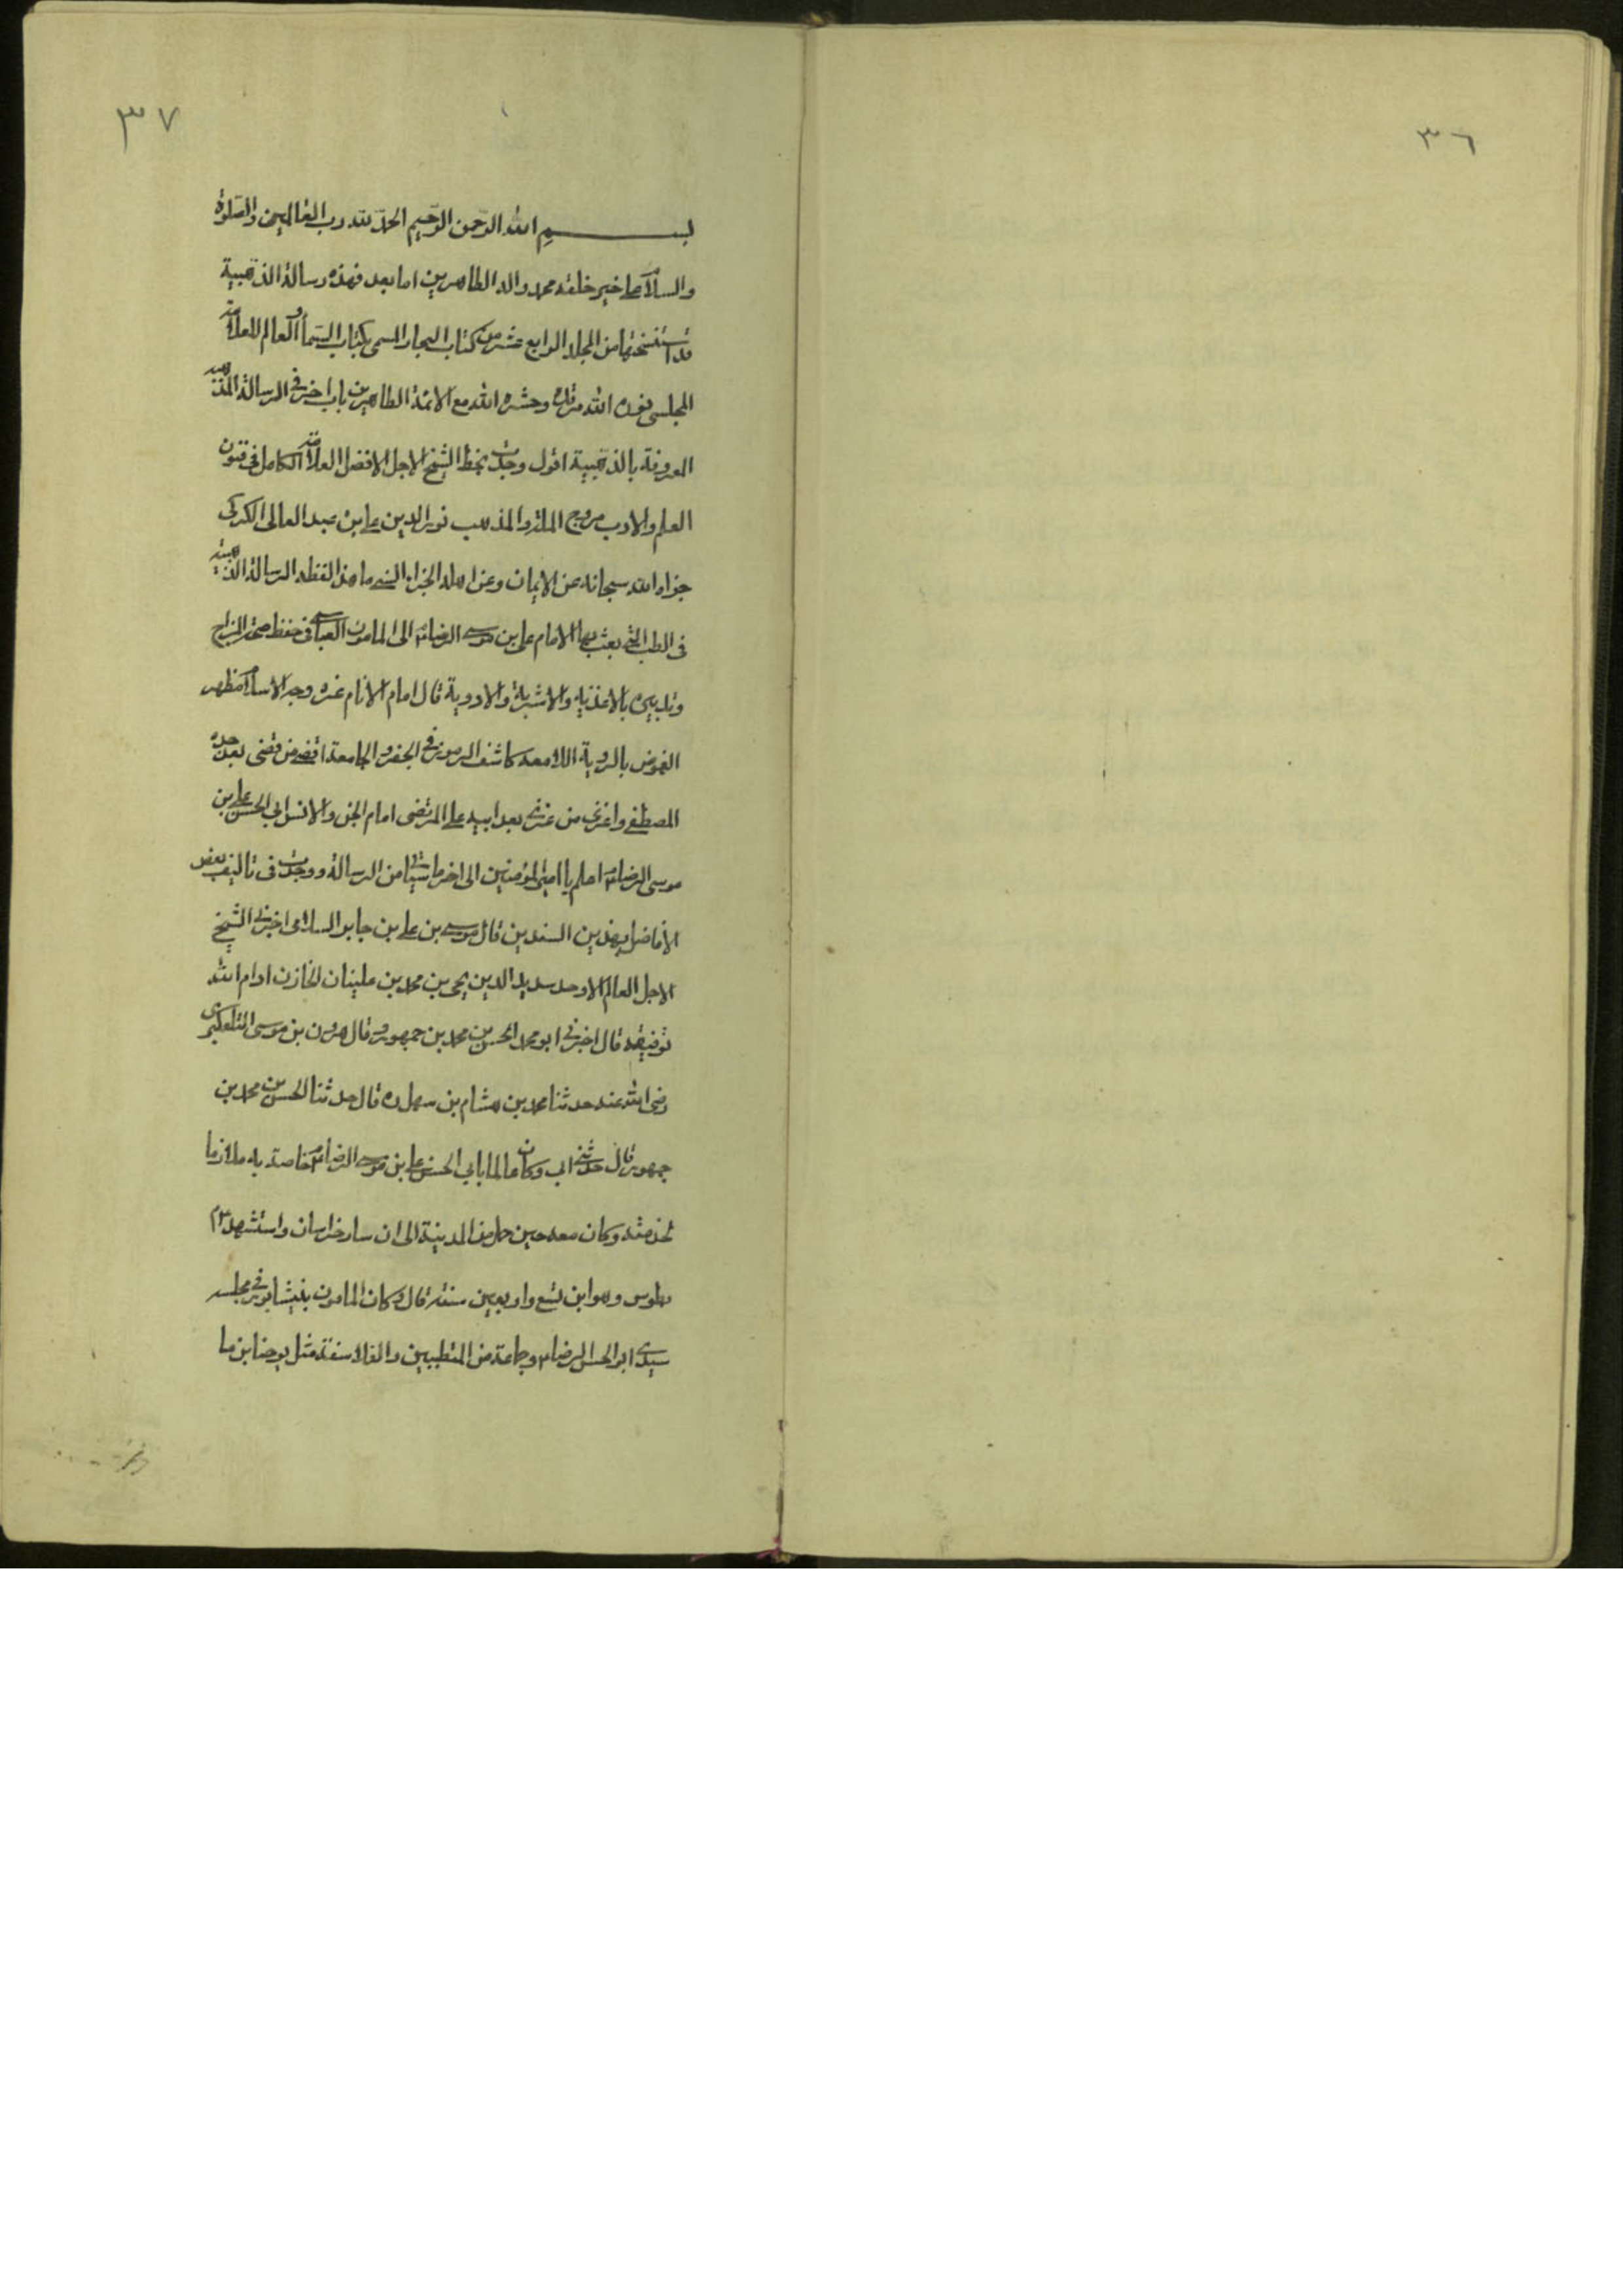 ٣٦
٣٧
بسم الله الرحمن الرحيم الحمد لله رب العالمين والصلوة
والسلام على خير خلقه محمد واله الطاهرين اما بعد فهذه رسالة الذهبية
قد استنسختها من المجلد الرابع عشر من كتاب البحار المسمى بكتاب السماء والعالم للعلامة
المجلسى نور الله مرقده وحشره الله مع الائمة الطاهرين باب اخر فى الرسالة المذهبة
المعروفة بالذهبية اقول وجدت بخط الشيخ الاجل الافضل العلامة الكامل فى فنون
العلم والادب مروج الملة والمذهب نور الدين على بن عبد العالى الكركى
جزاه الله سبحانه عن الايمان وعن اهله الجزاء السنى ما هذا لفظه الرسالة الذهبية
فى الطب التى بعث بها الامام على بن موسى الرضا ع الى المامون العباسى فى حفظ صحة المزاج
وتدبيره بالاغذية والاشربة والادوية قال امام الانام غرة وجه الاسلام مظهر
الغموض بالروية اللامعة كاشف الرموز فى الجفر والجامعة اقضى من قضى بعد جده
المصطفى واغزى من غزى بعد ابيه على المرتضى امام الجن والانس ابى الحسن على بن
موسى الرضا ع اعلم يا امير المؤمنين الى اخر ما سيأتى من الرسالة ووجدت فى تاليف بعض
الافاضل بهذين السندين قال موسى بن على بن جابر السلامى اخبرنى الشيخ
الاجل العالم الاوحد سديد الدين يحيى بن محمد بن علينان الخازن ادام الله
توفيقه قال اخبرنى ابو محمد الحسن بن محمد بن جمهور قال هرون بن موسى التلعكبرى
رضى الله عنه حدثنا محمد بن هشام بن سهل ره قال حدثنا الحسن بن محمد بن
جمهور قال حدثنى ابى وكان عالما بابى الحسن على بن موسى الرضا ع خاصة به ملازما
لخدمته وكان معه حين حمل من المدينة الى ان سار خراسان واستشهد ع
بطوس وهو ابن تسع واربعين سنة قال وكان المامون بنيشابور فى مجلسه
سيدى ابو الحسن الرضا ع وجماعة من المتطببين والفلاسفة مثل يوحنا بن ما